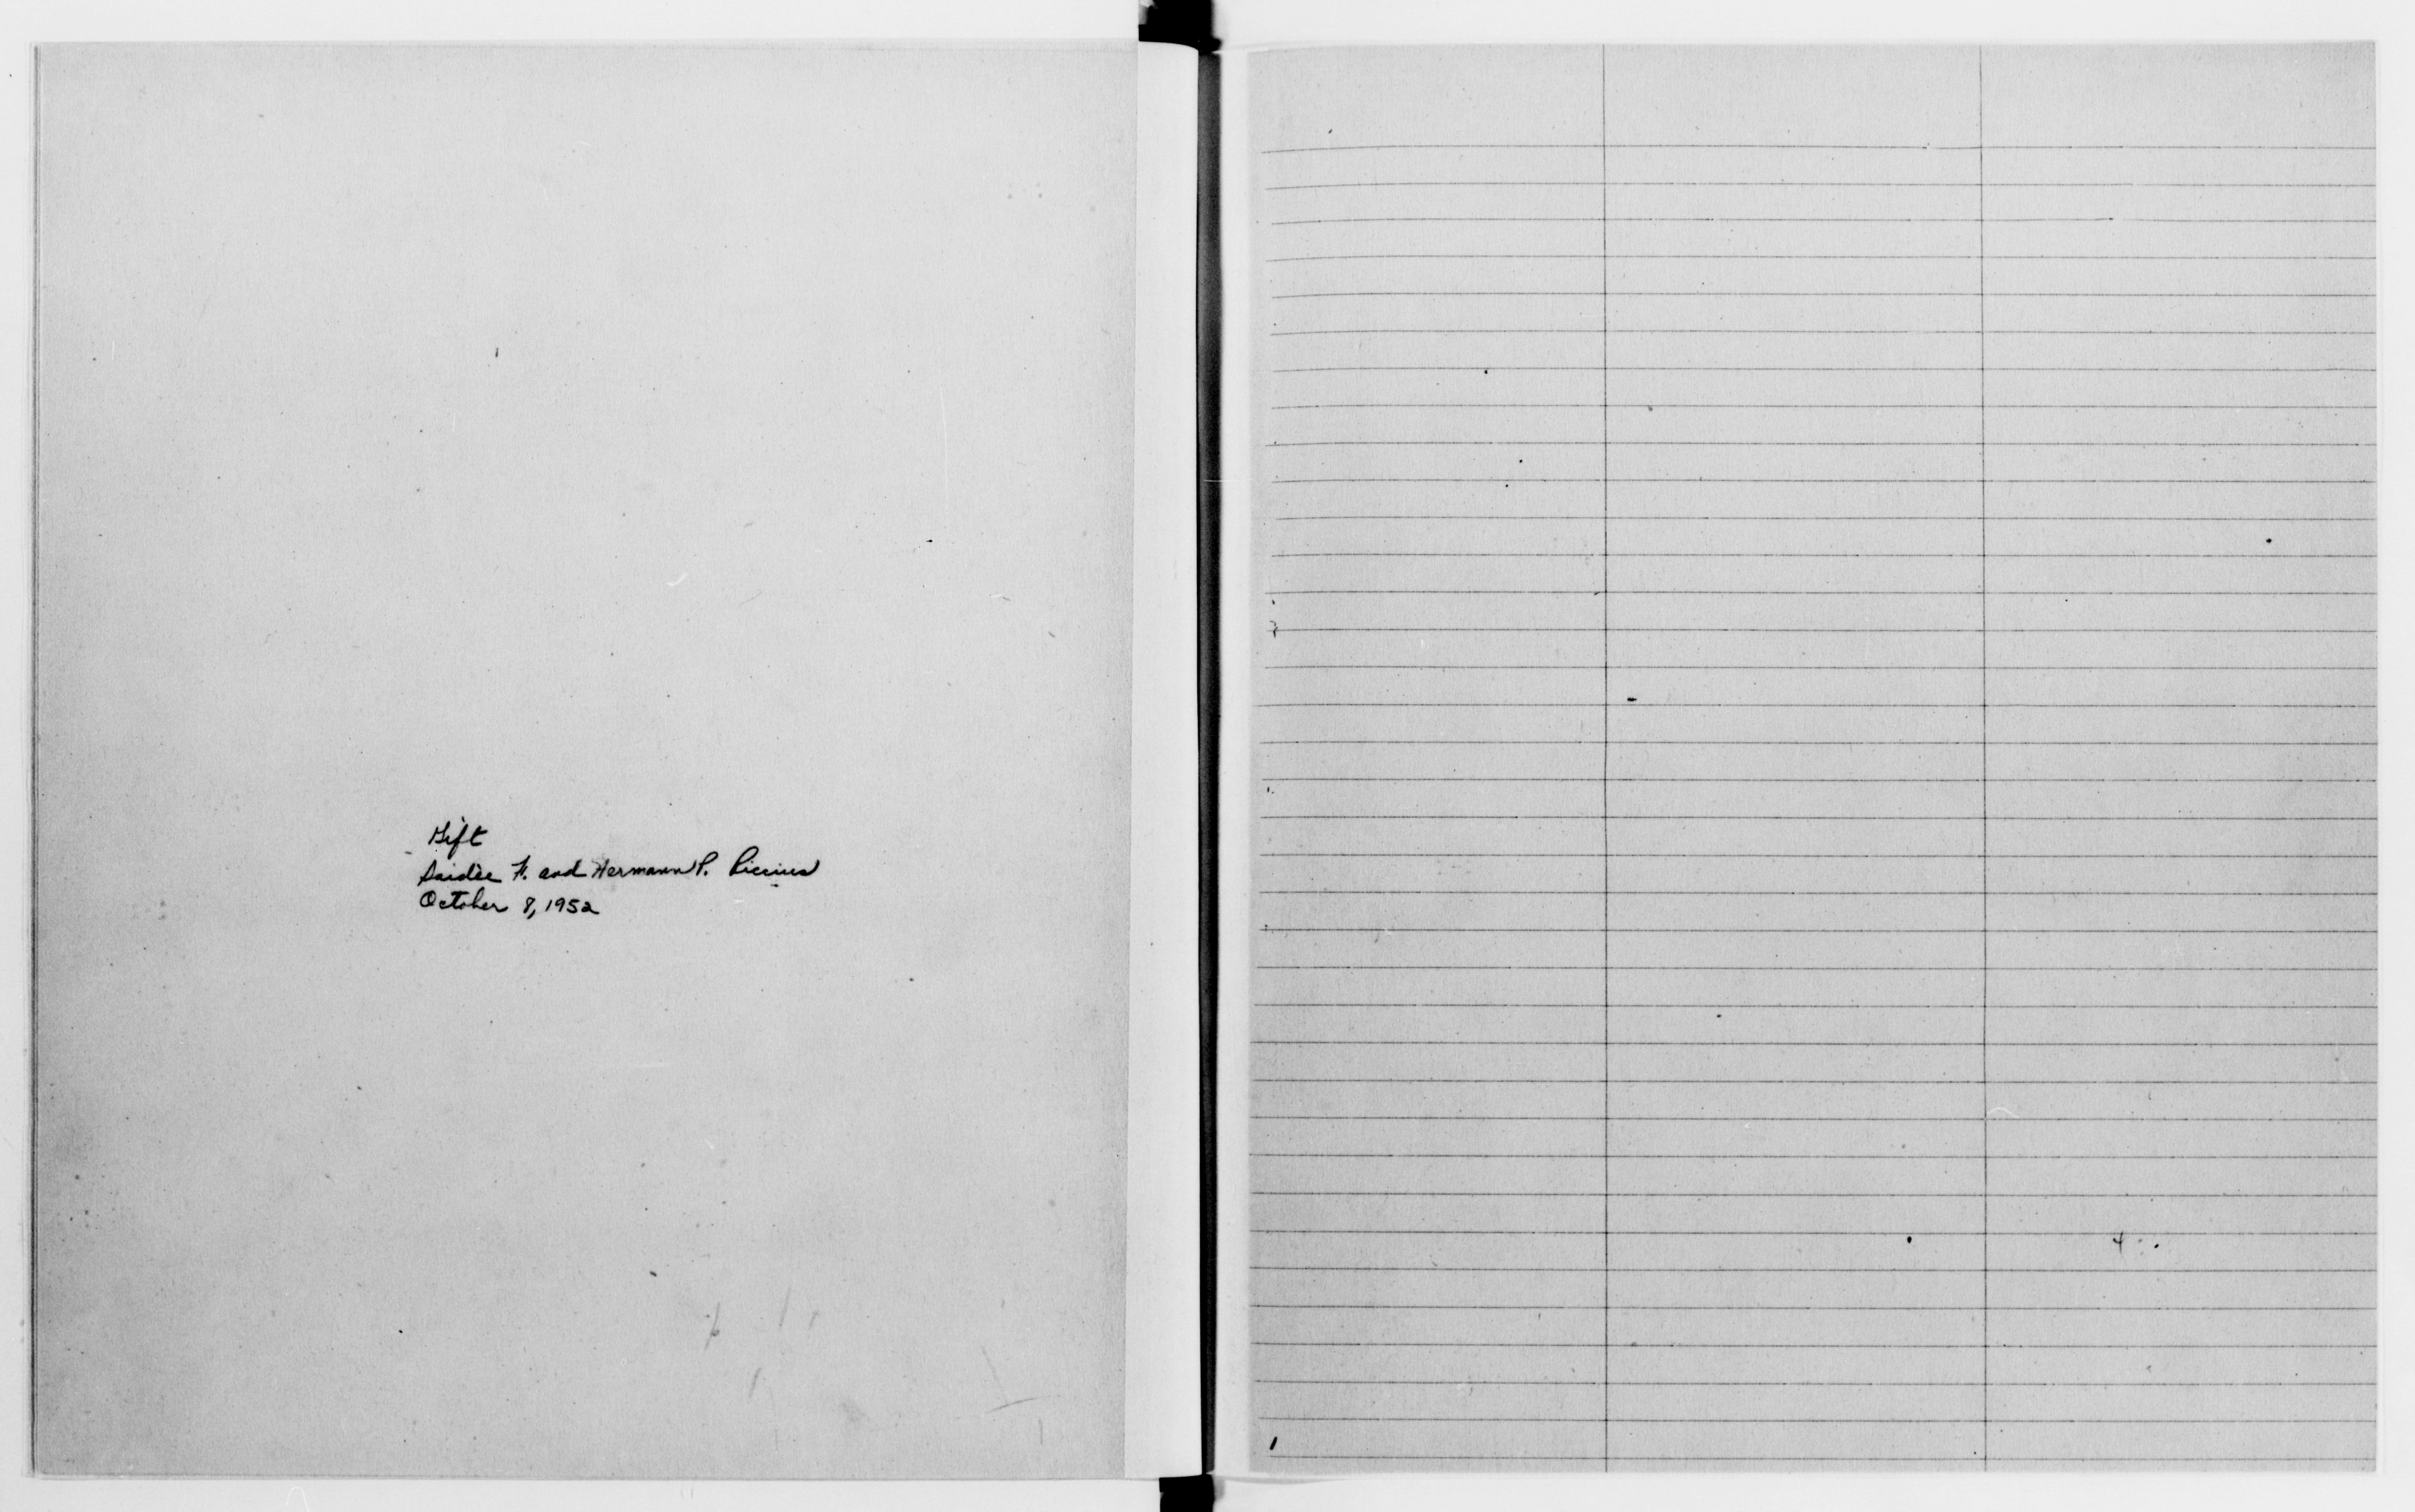 Gift
Saidée F. and Hermann P. Riccius
October 8, 1952